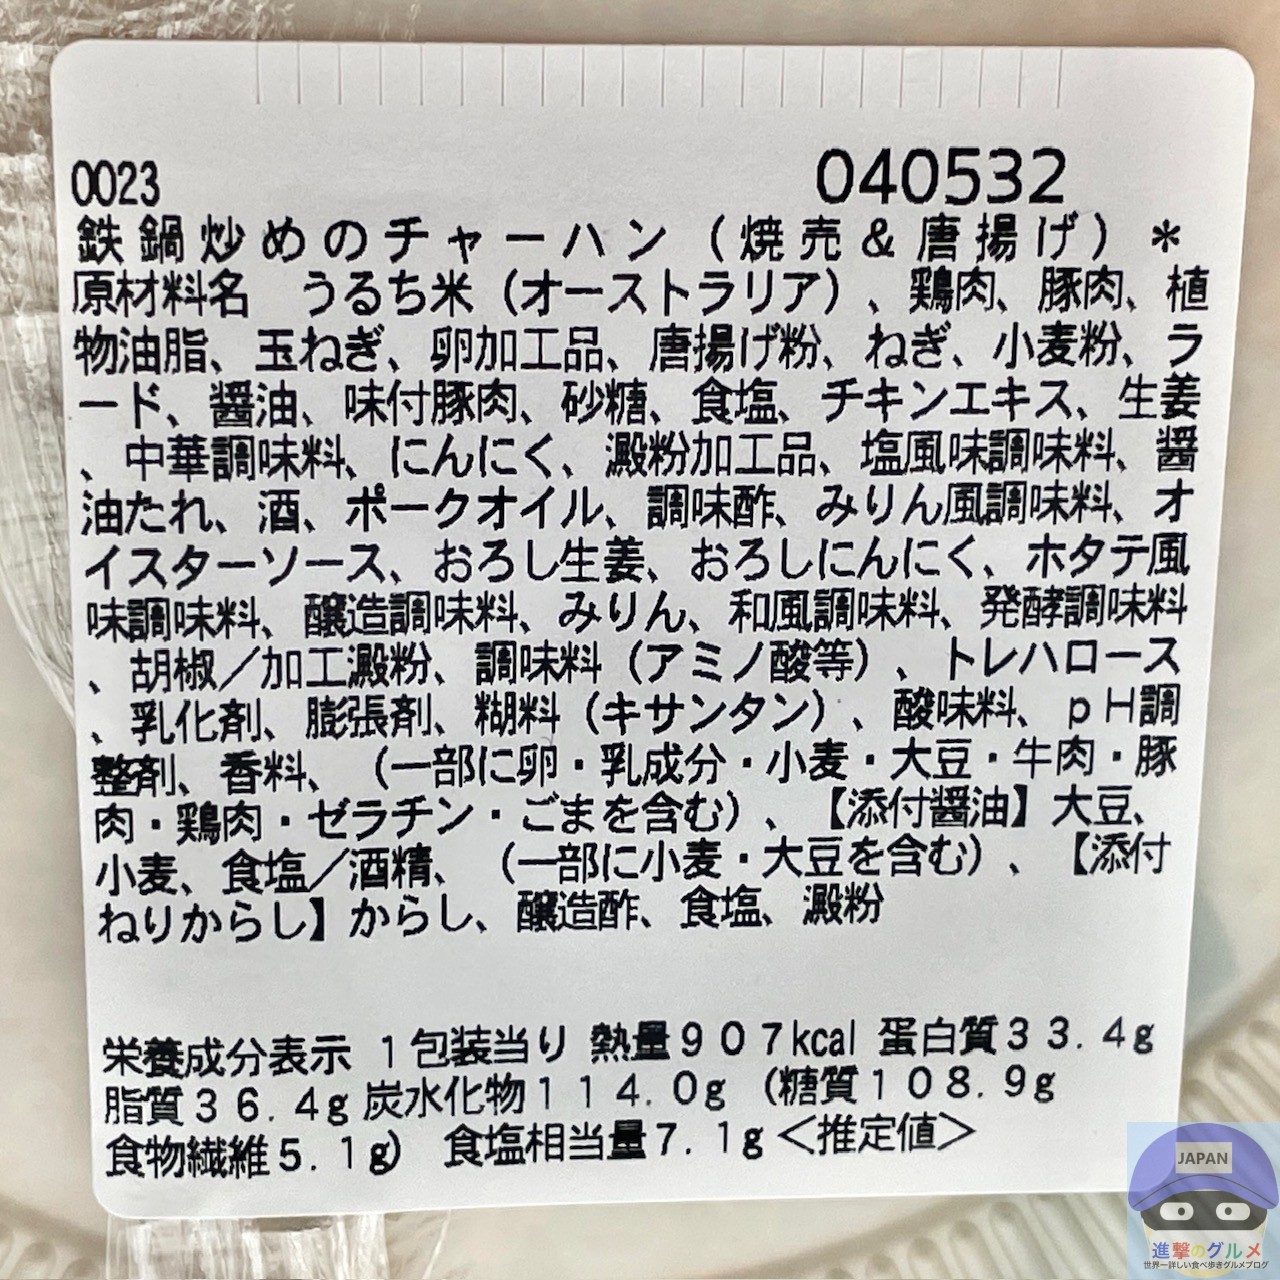 0023
040532
鉄鍋炒めのチャーハン(焼売&唐揚げ)*
原材料名 うるち米(オーストラリア)、鶏肉、豚肉、植
物油脂、玉ねぎ、卵加工品、唐揚げ粉、ねぎ、小麦粉、ラ
ード、醤油、味付豚肉、砂糖、食塩、チキンエキス、生姜
、中華調味料、にんにく、澱粉加工品、塩風味調味料、醤
油たれ、酒、ポークオイル、調味酢、みりん風調味料、オ
イスターソース、おろし生姜、おろしにんにく、ホタテ風
味調味料、醸造調味料、みりん、和風調味料、発酵調味料
、胡椒/加工澱粉、調味料(アミノ酸等)、トレハロース
、乳化剤、膨張剤、糊料(キサンタン)、酸味料、pH調
整剤、香料、(一部に卵・乳成分・小麦・大豆・牛肉・豚
肉・鶏肉・ゼラチン・ごまを含む)、【添付醤油】大豆、
小麦、食塩/酒精、(一部に小麦・大豆を含む)、【添付
ねりからし】からし、醸造酢、食塩、澱粉
栄養成分表示 1包装当り 熱量907kcal 蛋白質33.4g
脂質36.4g 炭水化物114.0g (糖質108.9g
食物繊維5.1g) 食塩相当量7.1g <推定値>
JAPAN
進撃のグルメ
世界一詳しい食べ歩きグルメブログ